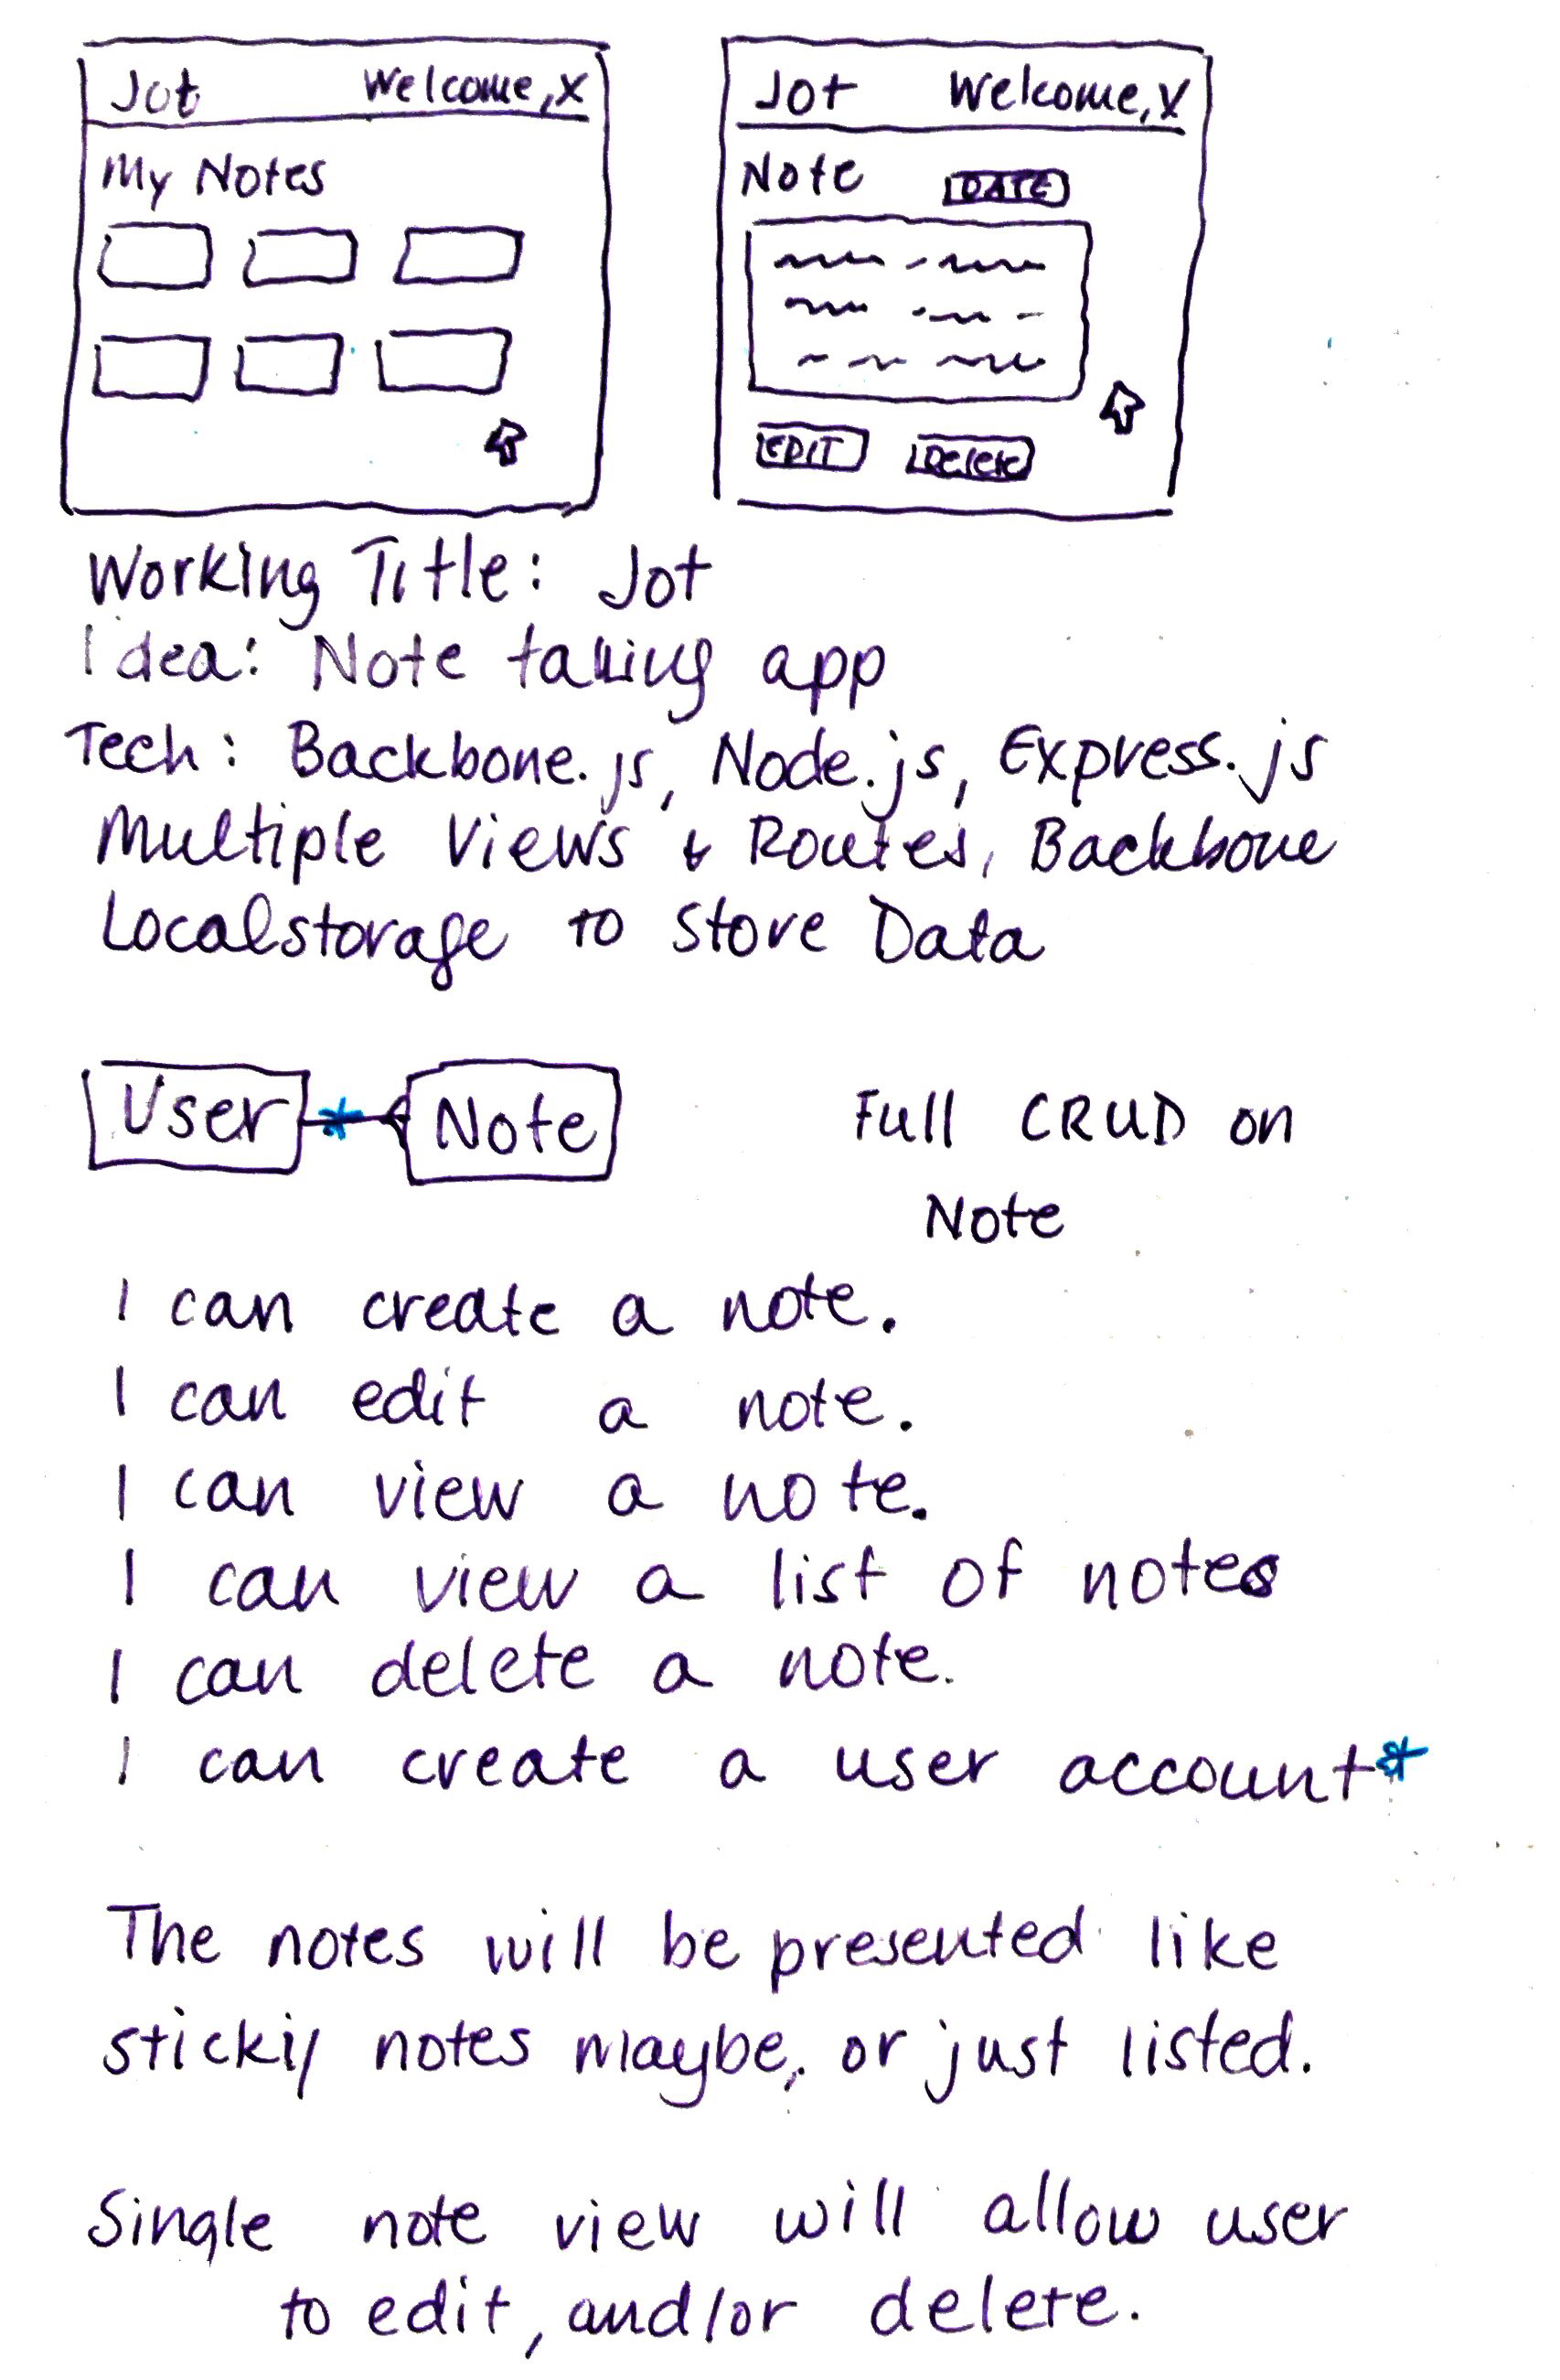 Jot Welcome, X
My Notes
Jot Welcome, X
Note DATE
EDIT Delete
Working Title: Jot
Idea: Note taking app
Tech: Backbone.js, Node.js, Express.js
Multiple Views & Routes, Backbone
Localstorage to Store Data
User * Note
Full CRUD on
Note
I can create a note.
I can edit a note.
I can view a note.
I can view a list of notes
I can delete a note.
I can create a user account*
The notes will be presented like
sticky notes maybe, or just listed.
Single note view will allow user
to edit, and/or delete.